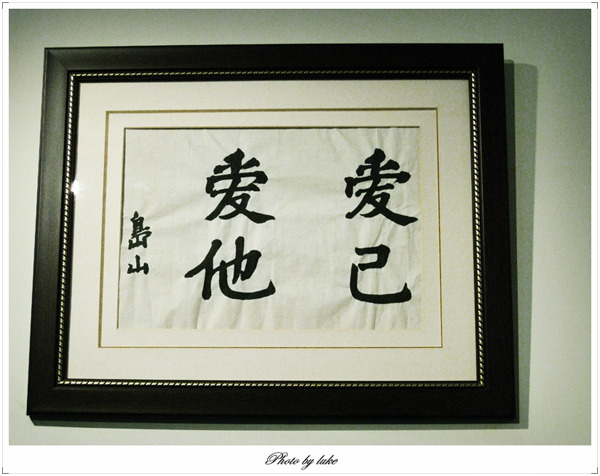 愛己
愛他
島山
Photo by luke